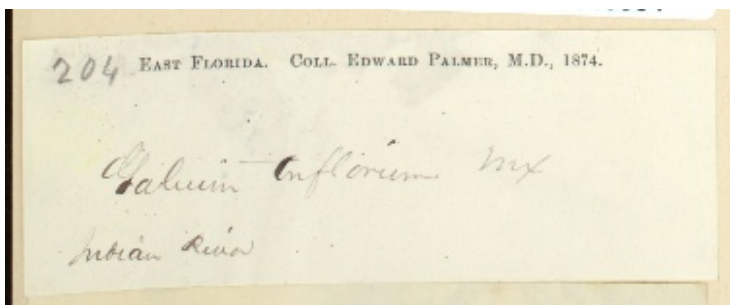 204 EAST FLORIDA. COLL. EDWARD PALMER, M.D., 1874.
Galium Mx
Indian River